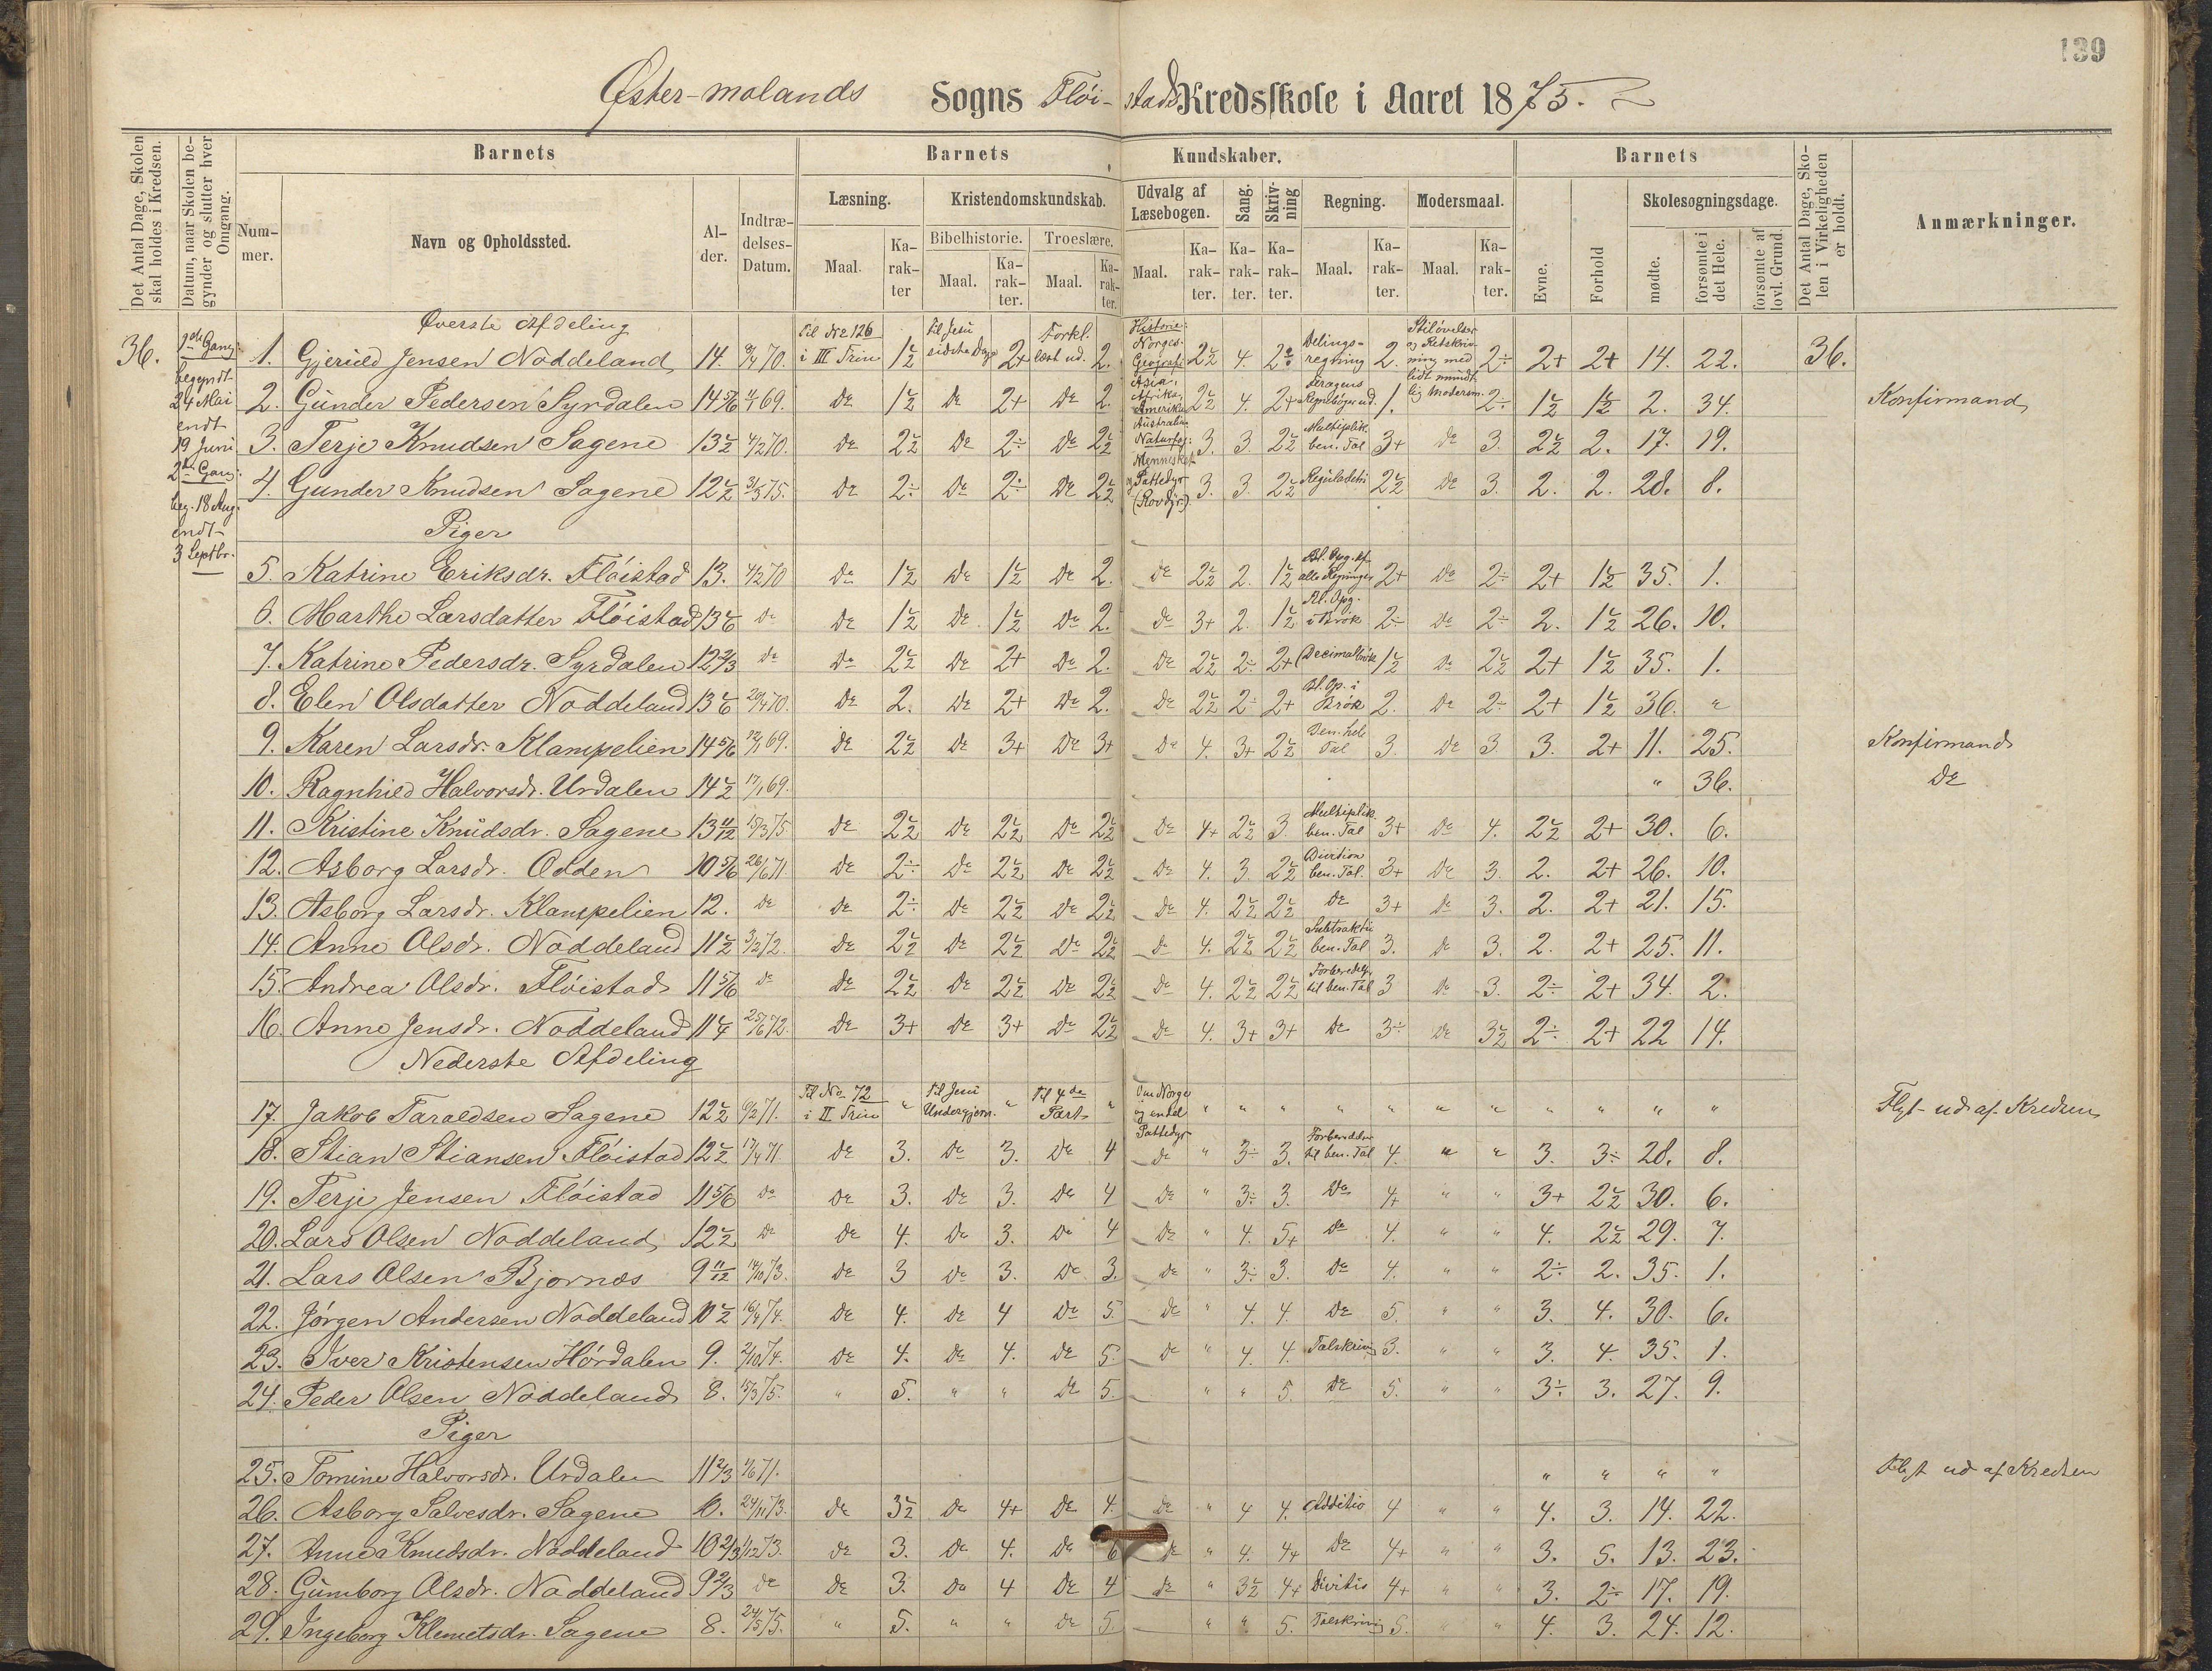 139
Øster-molands Sogns Flöi-stads Kredsskole i Aaret 1875.
Det Antal Dage, Skolen skal holdes i Kredsen.
Datum, naar Skolen begynder og slutter hver Omgang.
Barnets
Barnets Kundskaber.
Barnets
Det Antal Dage, Skolen i Virkeligheden er holdt.
Anmærkninger.
Nummer.
Navn og Opholdssted.
Alder.
Indtrædelses-Datum.
Læsning.
Kristendomskundskab.
Udvalg af Læsebogen.
Sang.
Skrivning
Regning.
Modersmaal.
Evne.
Forhold
Skolesøgningsdage.
Bibelhistorie. Troeslære.
Maal. Karakter Maal. Karakter. Maal. Karakter. Maal. Karakter. Karakter. Karakter. Maal. Karakter. Maal. Karakter.
mødte. forsømte i det Hele. forsømte af lovl. Grund.
36.
1ste Gang:
begyndt
24 Mai
endt
19 Juni
2den Gang:
beg. 18 Aug.
endt
3 Septbr.
Øverste Afdeling
Historie:
Norges.
Geografi
Asia,
Afrika,
Amerika
Australia
Naturhis:
Mennesket
og Pattedyr
(Rovdyr).
Stiløvelser
og Retskriv-
ning med
lidt mundt-
lig Modersm.
1. Gjeruld Jensen Noddeland 14. 70. Til No 126 i III Trin 1½ til Jesu sidste Dage 2+ Forkl. læst ud. 2. 2½ 4. 2÷ Delings-regning 2. 2÷ 2+ 2+ 14. 22. 36.
2. Gunder Pedersen Syrdalen 14 5/6 69. Do 1½ Do 2+ Do 2. 2½ 4. 2+ Regnebøger ud. 1. 2÷ 1½ 1½ 2. 34. Konfirmand
3. Terje Knudsen Sagene 13½ 4/2 70. Do 2½ Do 2÷ Do 2½ 3. 3. 2½ Multiplik. ben. Tal 3+ Do 3. 2½ 2. 17. 19.
4. Gunder Knudsen Sagene 12½ 31/3 75. Do 2÷ Do 2÷ Do 2½ 3. 3. 2½ Reguladetri 2½ Do 3. 2. 2. 28. 8.
Piger
5. Katrine Eriksdr. Flöistad 13. 4/2 70 Do 1½ Do 1½ Do 2. Do 2½ 2. 1½ Bl. Opg. af alle Regninger 2+ Do 2÷ 2+ 1½ 35. 1.
6. Marthe Larsdatter Flöistad 13 1/6 Do Do 1½ Do 1½ Do 2. Do 3+ 2. 1½ Bl. Opg. i Brök 2÷ Do 2÷ 2. 1½ 26. 10.
7. Katrine Pedersdr. Syrdalen 12 2/3 Do Do 2½ Do 2+ Do 2. Do 2½ 2÷ 2+ Decimalbrök 1½ Do 2½ 2+ 1½ 35. 1.
8. Elen Olsdatter Noddeland 13 1/6 20/4 70. Do 2. Do 2+ Do 2. Do 2½ 2÷ 2+ Bl. Op. i Brök 2. Do 2÷ 2+ 1½ 36. "
9. Karen Larsdr. Klampelien 14 5/6 69. Do 2½ Do 3+ Do 3+ Do 4. 3+ 2½ Ben. hele Tal 3. Do 3 3. 2+ 11. 25. Konfirmand
10. Ragnhild Halvorsdr. Urdalen 14½ 17/1 69. " 36. Do
11. Kristine Knudsdr. Sagene 13 11/12 15/3 75 Do 2½ Do 2½ Do 2½ Do 4+ 2½ 3. Multiplik. ben. Tal 3+ Do 4. 2½ 2+ 30. 6.
12. Asborg Larsdr. Odden 10 5/6 26/6 71. Do 2÷ Do 2½ Do 2½ Do 4. 3. 2½ Division ben. Tal. 3+ Do 3. 2. 2+ 26. 10.
13. Asborg Larsdr. Klampelien 12. Do Do 2÷ Do 2½ Do 2½ Do 4. 2½ 2½ Do 3+ Do 3. 2. 2+ 21. 15.
14. Anne Olsdr. Noddeland 11½ 3/2 72. Do 2½ Do 2½ Do 2½ Do 4. 2½ 2½ Subtraktio ben. Tal 3. Do 3. 2. 2+ 25. 11.
15. Andrea Olsdr. Flöistad 11 5/6 Do Do 2½ Do 2½ Do 2½ Do 4. 2½ 2½ Forberedelse til ben. Tal 3 Do 3. 2÷ 2+ 34. 2.
16. Anne Jensdr. Noddeland 11¼ 25/6 72. Do 3+ Do 3+ Do 2½ Do 4. 3+ 3+ Do 3÷ Do 3½ 2÷ 2+ 22 14.
Nederste Afdeling
17. Jakob Taraldsen Sagene 12½ 71. Til No 72 i II Trin " til Jesu Undergjern. " til 4de Part " Om Norge og endel Pattedyr " " " " " " " " " " " Flyt ud af Kredsen
18. Stian Stiansen Flöistad 12½ 17/4 71 Do 3. Do 3. Do 4 Do " 3÷ 3. Forberedelse til ben. Tal 4. " " 3. 3÷ 28. 8.
19. Terje Jensen Flöistad 11 5/6 Do Do 3. Do 3. Do 4 Do " 3÷ 3. Do 4+ " " 3+ 2½ 30. 6.
20. Lars Olsen Noddeland 12½ Do Do 4. Do 3. Do 4 Do " 4. 5+ Do 4. " " 4. 2½ 29. 7.
21. Lars Olsen Bjornæs 9 11/12 14/10 73. Do 3 Do 3. Do 3. Do " 3÷ 3. Do 4. " " 2÷ 2. 35. 1.
22. Jørgen Andersen Noddeland 10½ 16/4 74. Do 4. Do 4 Do 5. Do " 4. 4. Do 5. " " 3. 4. 30. 6.
23. Iver Kristensen Hördalen 9. 2/10 74. Do 4. Do 4. Do 5. Do " 4. 4. Talskriving 3. " " 3. 4. 35. 1.
24. Peder Olsen Noddeland 8. 15/3 75. " 5. " " Do 5. " " 5. Do 5. " " 3÷ 3. 27. 9.
Piger
25. Tomine Halvorsdr. Urdalen 11 2/3 71. " " " " Flyt ud af Kredsen
26. Asborg Salvesdr. Sagene 10. 24/11 73. Do 3½ Do 4+ Do 4. Do " 4 4. Additio 4 " " 4. 3. 14. 22.
27. Anne Knudsdr. Noddeland 10 2/3 1/12 73. Do 3. Do 4. Do 6 Do " 4. 4+ Do 4+ " " 3. 5. 13. 23.
28. Gumborg Olsdr. Noddeland 9 2/3 Do Do 3. Do 4 Do 4 Do " 3½ 4+ Divitio 4+ " " 3. 2÷ 17. 19.
29. Ingeborg Klemetsdr. Sagene 8. 24/5 75. " 5. " " Do 5. " " 5. Talskriving 5. " " 4. 3. 24. 12.